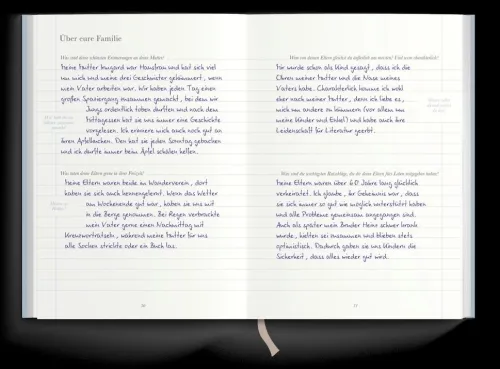 Über eure Familie
Was sind deine schönsten Erinnerungen an deine Mutter?
Meine Mutter Irmgard war Hausfrau und hat sich viel
um mich und meine drei Geschwister gekümmert, wenn
mein Vater arbeiten war. Wir haben jeden Tag einen
großen Spaziergang zusammen gemacht, bei dem wir
Jungs ordentlich toben durften und nach dem
Mittagessen hat sie uns immer eine Geschichte
vorgelesen. Ich erinnere mich auch noch gut an
ihren Apfelkuchen. Den hat sie jeden Sonntag gebacken
und ich durfte immer beim Äpfel schälen helfen.
Was taten deine Eltern gerne in ihrer Freizeit?
Meine Eltern waren beide im Wanderverein, dort
haben sie sich auch kennengelernt. Wenn das Wetter
am Wochenende gut war, haben sie uns mit
in die Berge genommen. Bei Regen verbrachte
mein Vater gerne einen Nachmittag mit
Kreuzworträtseln, während meine Mutter für uns
alle Socken strickte oder ein Buch las.
Was von deinen Eltern findest du äußerlich an meisten? Und was charakterlich?
Mir wurde schon als Kind gesagt, dass ich die
Ohren meiner Mutter und die Nase meines
Vaters habe. Charakterlich komme ich wohl
eher nach meiner Mutter, denn ich liebe es,
mich um andere zu kümmern (vor allem um
meine Kinder und Enkel) und habe auch ihre
Leidenschaft für Literatur geerbt.
Was sind die wichtigsten Ratschläge, die dir deine Eltern fürs Leben mitgegeben haben?
Meine Eltern waren über 60 Jahre lang glücklich
verheiratet. Ich glaube, ihr Geheimnis war, dass
sie sich immer so gut wie möglich unterstützt haben
und alle Probleme gemeinsam angegangen sind.
Auch als später mein Bruder Heinz schwer krank
wurde, hielten sie zusammen und blieben stets
optimistisch. Dadurch gaben sie uns Kindern die
Sicherheit, dass alles wieder gut wird.